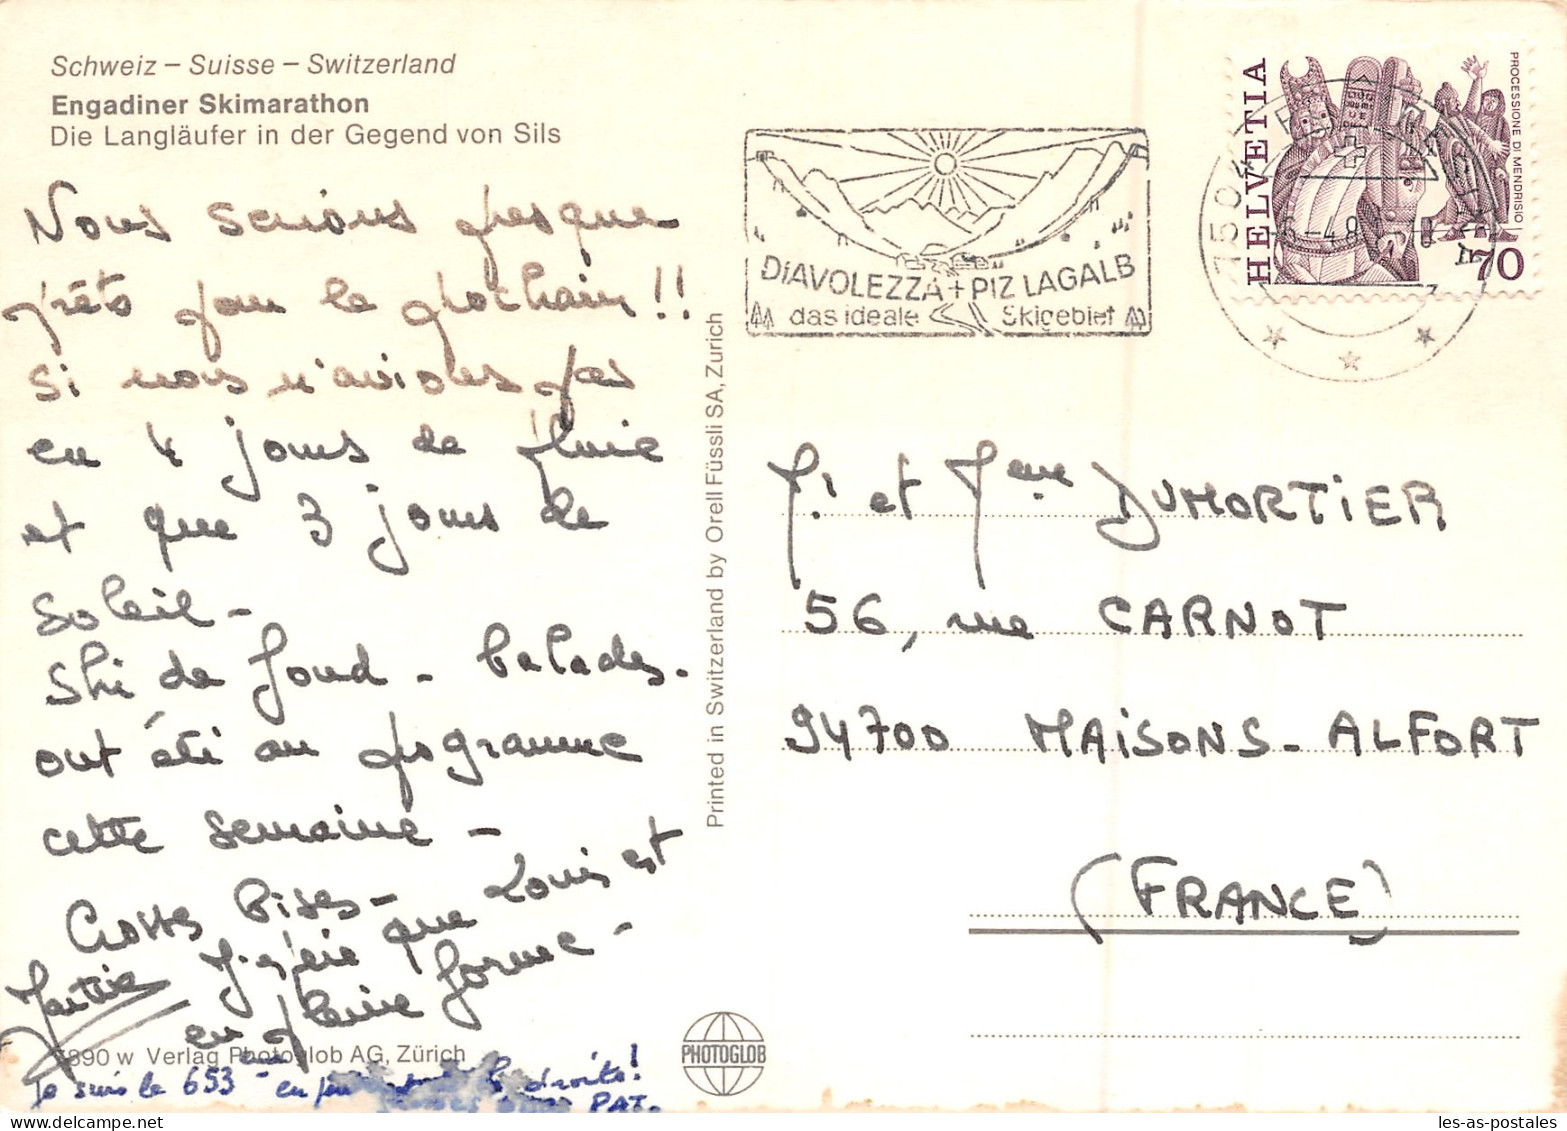 Schweiz – Suisse – Switzerland
Engadiner Skimarathon
Die Langläufer in der Gegend von Sils
Nous serions presque
prêts pour le prochain !!
Si nous n'avions pas
eu 4 jours de pluie
et que 3 jours de
soleil -
Ski de fond - balades.
ont été au programme
cette semaine -
Grosses bises -
J'espère que Louis est
en pleine forme -
890 w Verlag Photoglob AG, Zürich
Je suis le 653 en droite!
PAT.
Printed in Switzerland by Orell Füssli SA, Zürich
PHOTOGLOB
DIAVOLEZZA + PIZ LAGALB
das ideale Skigebiet
HELVETIA
PROCESSIONE DI MENDRISIO
70
750
M. et Mme DUMORTIER
56, rue CARNOT
94700 MAISONS-ALFORT
(FRANCE)
les-as-postales